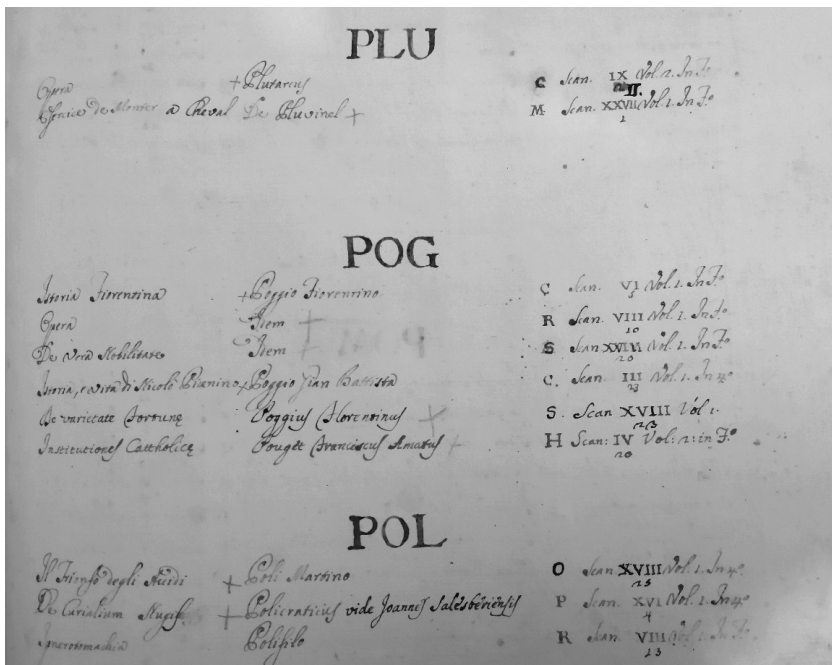 PLU
Opera + Plutarcus C Scan. IX Vol. 2. In F.º
II.
de Monter a Cheval De Pluvinel + M Scan. XXVII Vol. 1. In F.º
1
POG
Istoria Fiorentina + Poggio Fiorentino C Scan. VI Vol. 1. In F.º
5
Opera Idem + R Scan. VIII Vol. 1. In F.º
10
De Vera Nobilitate Idem S Scan XXVII Vol. 1. In F.º
20
Istoria, e vita di Nicolò Picinino + Poggio Gian Battista C. Scan. III Vol. 1. In 4º
23
De varietate Fortunę Poggius Florentinus + S. Scan XVIII Vol 1.
23
Institutiones Cattholicę Pouget Franciscus Amatus + H Scan: IV Vol: 2: in F.º
20
POL
Il Trionfo degli Acidi + Poli Martino O Scan XVIII Vol. 1. In 4º
25
De Curialium Nugis + Policraticus vide Joannes Salesberiensis P Scan. XVI Vol. 1. In 4º
4
Ipnerotomachia Polifilo R Scan. VIII Vol. 1. In F.º
13